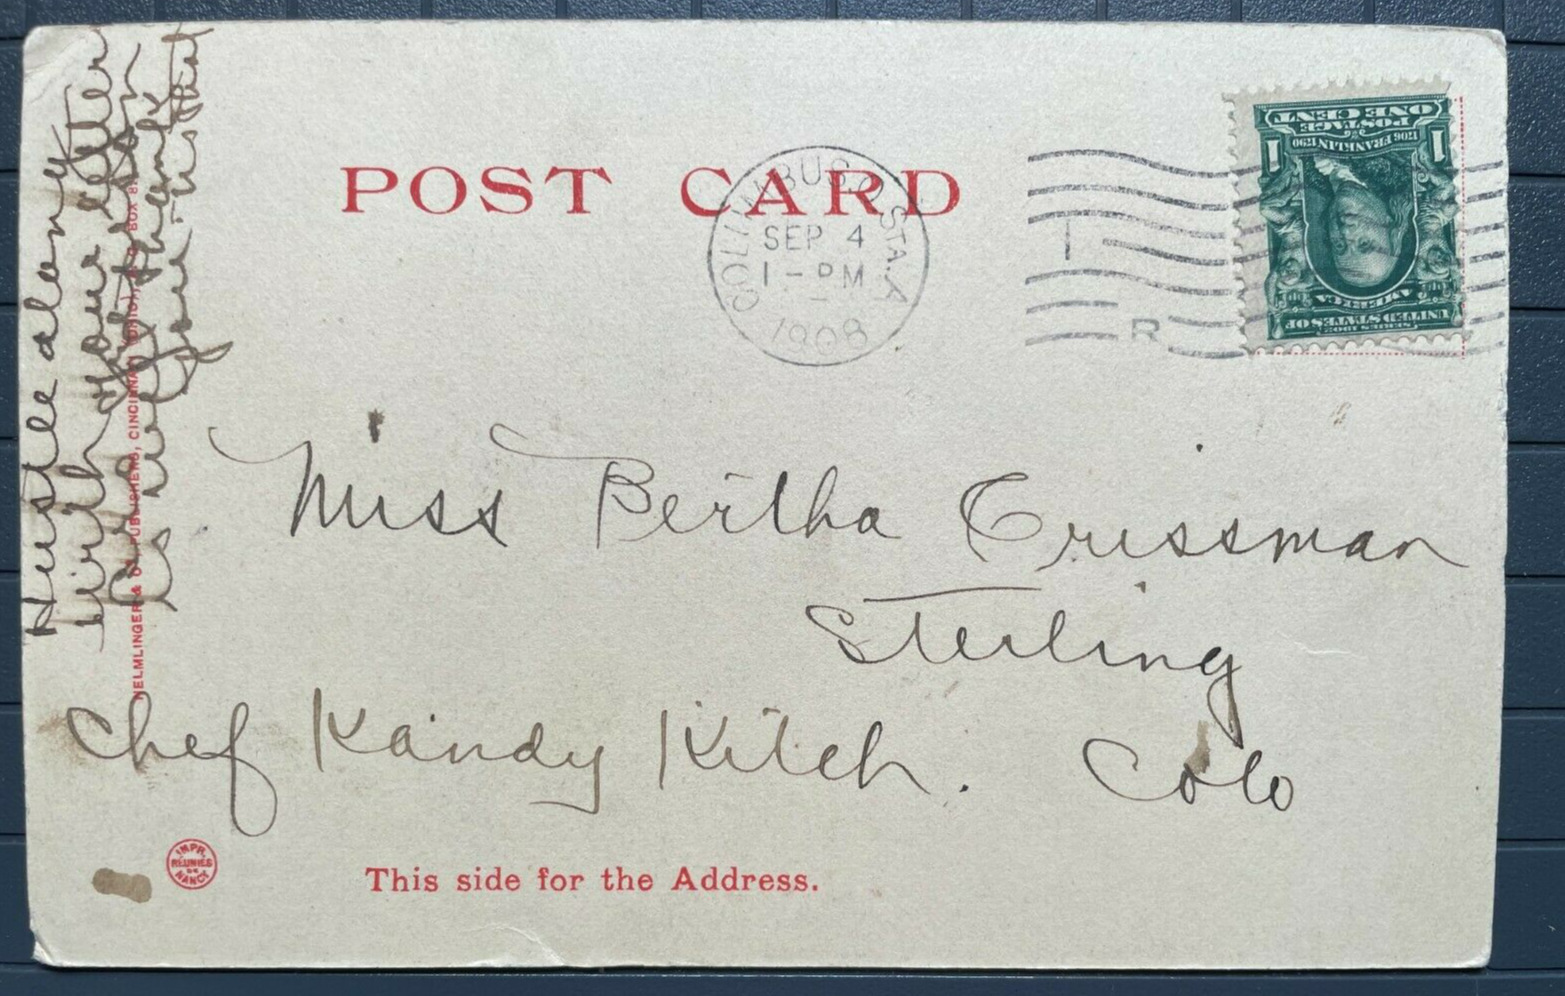 Hustle along
with your letter
for
is
you
that
HELMLINGER & CO. PUBLISHERS, CINCINNATI (OHIO), P. O. BOX 8
POST CARD
COLUMBUS, O. STA. A
SEP 4
1 - PM
1908
R
ONE CENT
POSTAGE
1706 FRANKLIN 1790
1 1
AMERICA
UNITED STATES OF
SERIES 1902
Miss Bertha Crissman
Sterling
Chef Kandy Kitch. Colo
IMPR.
REUNIES
DE
NANCY
This side for the Address.